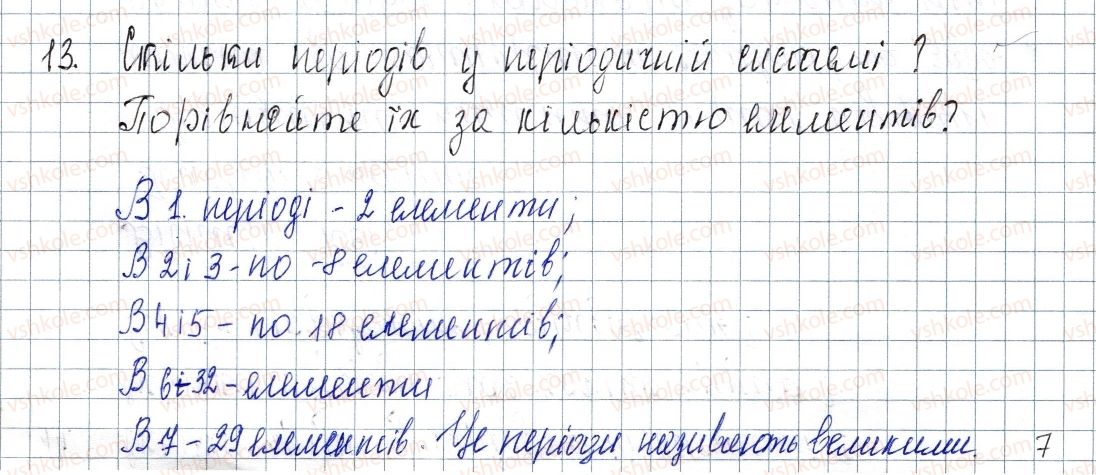 13. Скільки періодів у періодичній системі?
Порівняйте їх за кількістю елементів?
В 1. періоді - 2 елементи;
В 2 і 3 - по - 8 елементів;
В 4 і 5 - по 18 елементів;
В 6 - 32 - елементи
В 7 - 29 елементів. Це періоди називають великими. 7